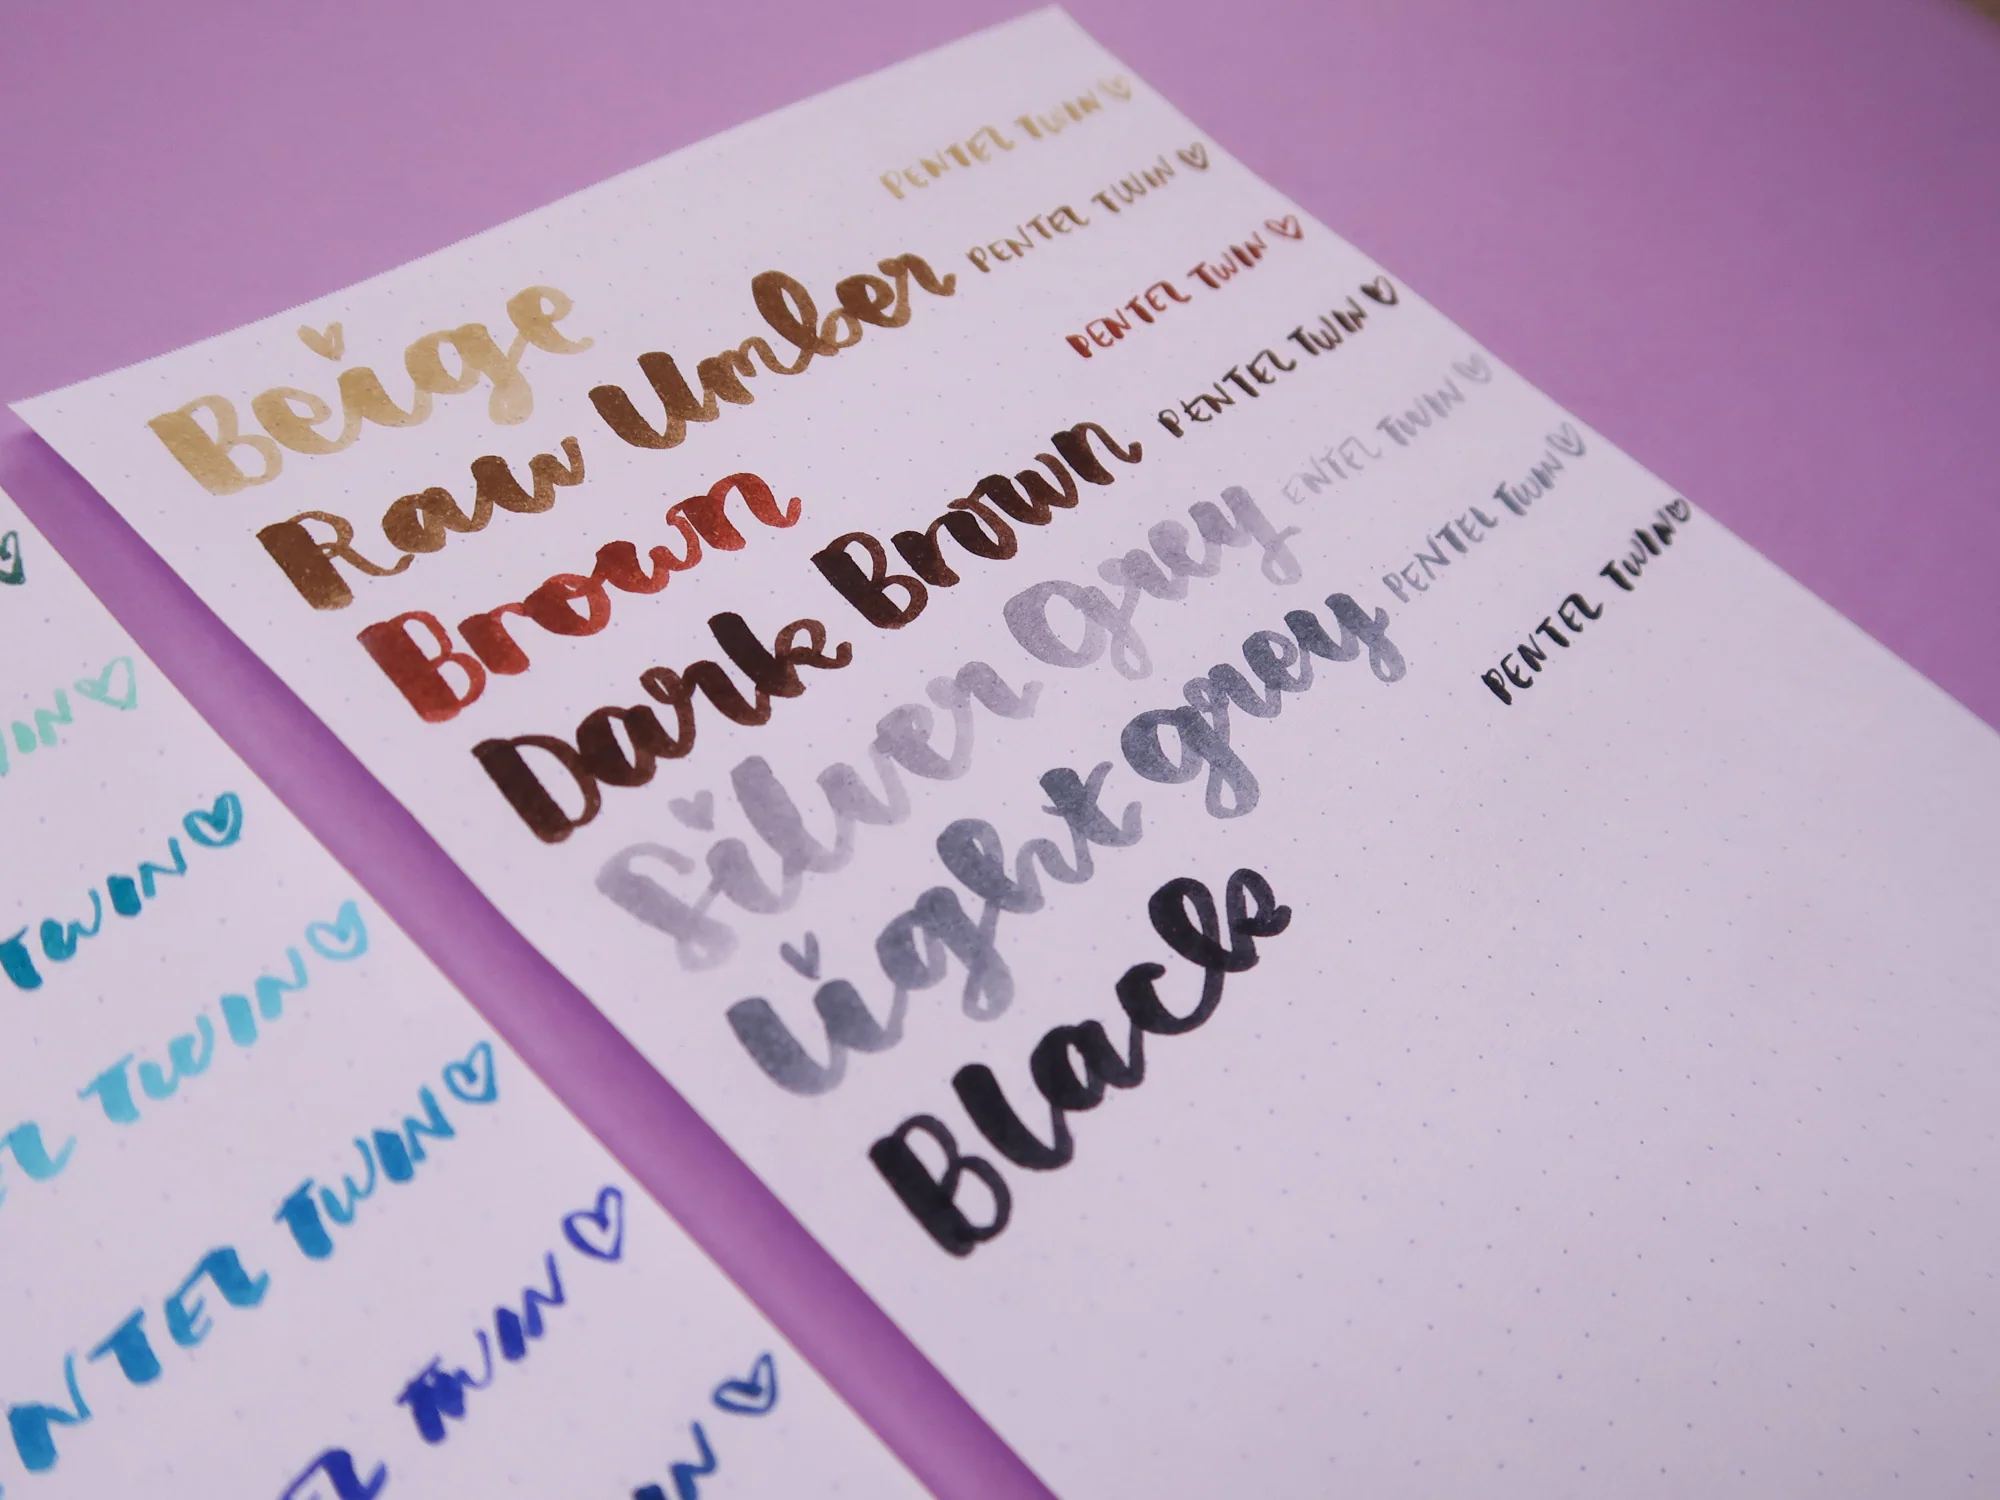 Beige PENTEL TWIN
Raw Umber PENTEL TWIN
Brown PENTEL TWIN
Dark Brown PENTEL TWIN
Silver Grey ENTEL TWIN
Light grey PENTEL TWIN
Black PENTEL TWIN
WIN
TWIN
EL TWIN
ENTEL TWIN
EL TWIN
IN